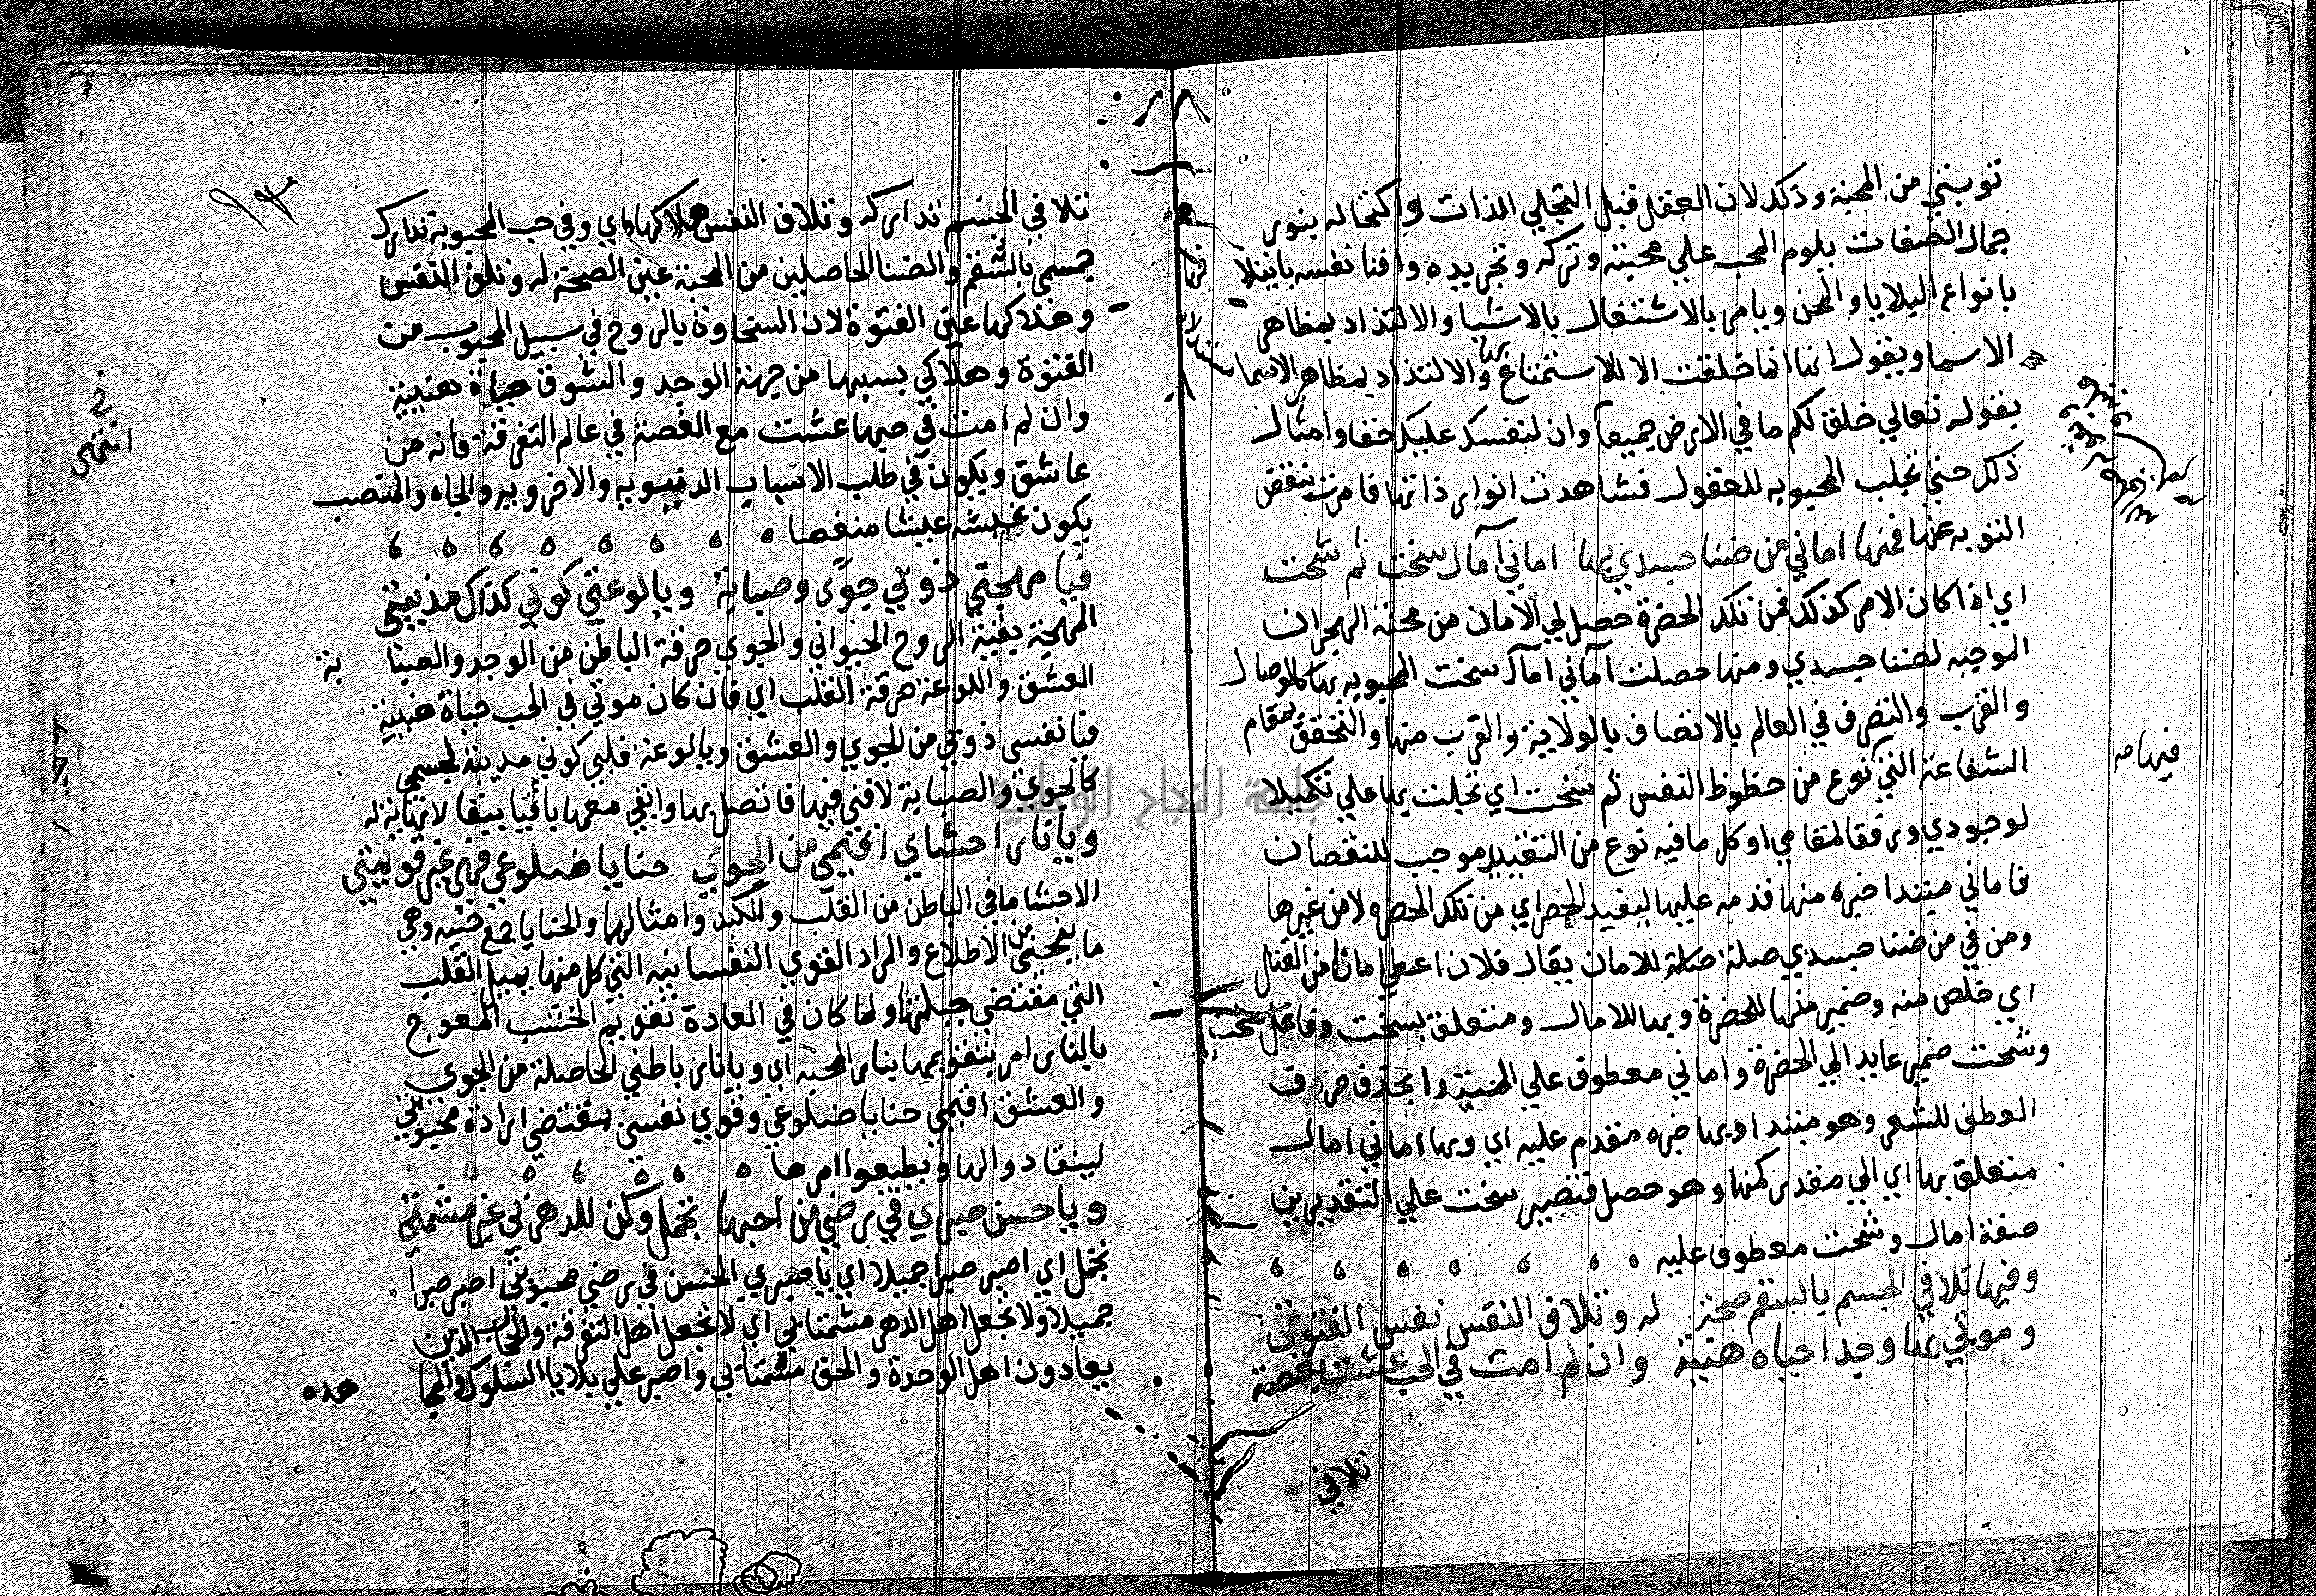 توبتي من المحبة وذلك لان العقل قبل التجلي الذات واكتحاله بنور
جمال الصفات يلوم المحب علي محبته وتركه وتجريده وافنا نفسه بابتلا
بانواع البلايا والمحن ويامر بالاشتغال بالاشيا والالتذاد بمظاهر
الاسما ويقول انها انما خلقت الا للاستمتاع بها والالتذاد بمظاهر الاسما
بقوله تعالي خلق لكم ما في الارض جميعا وان لنفسك عليك حقا وامثال
ذلك حتي تجلت المحبوبه للعقول فشاهدت انوار ذاتها فامرت بنقض
التوبه عنها فمنها اماني من ضنا جسدي بها اماني آمال سخت ثم شحت
اي اذا كان الامر كذلك فمن تلك الحضرة حصل لي الامان من محنة الهجران
الموجبه لضنا جسدي ومنها حصلت آماني آمال سخت المحبوبه بها كالوصال
والقرب والتصرف في العالم بالاتصاف بالولاية والقرب منها والتحقق بمقام
الشفاعة التي نوع من حظوظ النفس ثم شحت اي بخلت بها علي تكميلا
لوجودي ورفقا لمقامي اذ كل ما فيه نوع من التقييد موجب للنقصان
فاماني مبتدا خبره منها قدمه عليها ليفيد الحصر اي من تلك الحضره لا من غيرها
ومن في من ضنا جسدي صلة صلة للامان يقال فلان اعطي امانا من القتل
اي خلص منه وضمير منها للحضرة وبها للامال ومتعلق بسخت وفاعل سخت
وشحت ضمير عايد الي الحضرة واماني معطوف علي المبتدا بحذف حرف
العطف للشعر وهو مبتدا وبها خبره متقدم عليه اي وبها اماني امال
متعلق بها اي الي مقدر كمنها وهو حصل فتصير سخت علي التقديرين
صفة امال وشحت معطوف عليه
وفيها تلافي الجسم بالسقم صحة له وتلاف النفس نفس الفتوتي
وموتي بها وجدا حياه هنيئة وان لم امت في الحب عشت بغصة
تلافي
فيها صه
٩٣
تلافي الجسم تداركه وتلاف النفس هلاكها اي وفي حب المحبوبة تدارك
جسمي بالسقم والضنا الحاصلين من المحبة عين الصحة له وتلف النفس
وهلاكها عين الفتوة لان السخاوة بالروح في سبيل المحبوب من
الفتوة وهلاكي بسببها من جهة الوجد والشوق حياة هنيئة
وان لم امت في حبها عشت مع الغصة في عالم التفرقة فانه من
عاشق ويكون في طلب الاسباب الدنيويه والاخرويه والجاه والمنصب
يكون عيشه عيشا منغصا
فيا مهجتي ذوبي جوًى وصبابة ويا لوعتي كوني كذاك مذيبتي
المهجة بقية الروح الحيواني والجوي حرقة الباطن من الوجد والصبا بة
العشق واللوعة حرقة القلب اي فان كان موتي في الحب حياة هنيئة
فيا نفسي ذوبي من الجوي والعشق ويا لوعة قلبي كوني مذيبة لجسمي
كالجوي والصبابة لافني فيها فاتصل بها وابقي معها باقيا ببقا لا نهاية له
ويا نار احشاي اقيمي من الجوي حنايا ضلوعي فهي غير قويمتي
الاحشا ما في الباطن من القلب والكبد وامثالها والحنايا جمع حنيه وهي
ما ينحني من الاضلاع والمراد القوي النفسانيه التي كل منها يميل القلب
التي مقتضي جبلتها ولما كان في العادة تقويم الخشب المعوج
بالنار امر بتقويمها بنار المحبه اي ويا نار باطني الحاصلة من الجوي
والعشق اقيمي حنايا ضلوعي وقوي نفسي بمقتضي ارادة محبوبتي
لينقادوا لها ويطيعوا امرها
ويا حسن صبري في رضي من احبها تجمل وكن للدهر بي غير مشمتي
تجمل اي اصبر صبرا جميلا اي يا صبري الحسن في رضي محبوبتي اصبر صبرا
جميلا ولا تجعل اهل الدهر مشمتا بي اي لا تجعل اهل التفرقة والحجاب الذين
يعادون اهل الوحدة والحق مشمتا بي واصبر علي بلايا السلوك والمجا هده